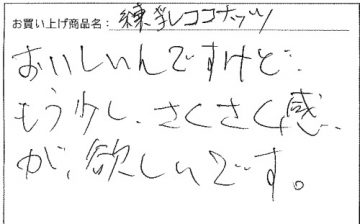 お買い上げ商品名：練乳ココナッツ
おいしいんですけど、
もう少し、さくさく感
が、欲しいです。